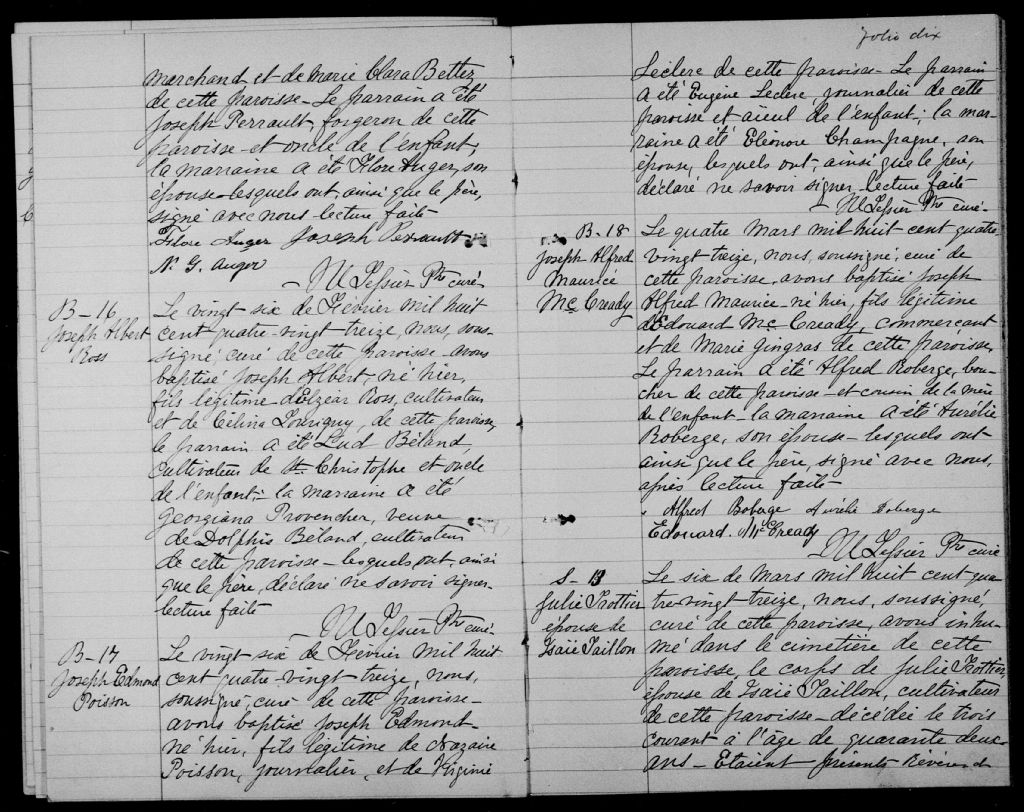 marchand et de Marie Clara Bettez
de cette paroisse – Le parrain a été
Joseph Perrault, forgeron de cette
paroisse – et oncle de l'enfant;
la marraine a été Flore Auger, son
épouse – lesquels ont, ainsi que le père,
signé avec nous lecture faite
Flore Auger Joseph Perrault
N. G. Auger
Tessier Ptre curé
B – 16
Joseph Albert
Ross
Le vingt six de Février mil huit
cent quatre-vingt treize, nous, sous-
signé, curé de cette paroisse avons
baptisé Joseph Albert, né hier,
fils légitime d'Elzéar Ross, cultivateur
et de Célina Lourigny, de cette paroisse,
le parrain a été Lud Béland,
cultivateur de St. Christophe et oncle
de l'enfant: la marraine a été
Georgiana Provencher, veuve
de Dolphis Béland, cultivateur
de cette paroisse – lesquels ont, ainsi
que le père, déclaré ne savoir signer
lecture faite
Tessier Ptre curé
B – 17
Joseph Edmond
Poisson
Le vingt six de Février mil huit
cent quatre-vingt treize, nous,
soussigné, curé de cette paroisse –
avons baptisé Joseph Edmond
né hier, fils légitime de Nazaire
Poisson, journalier, et de Virginie
folio dix
Leclerc de cette paroisse – Le parrain
a été Eugène Leclerc journalier de cette
paroisse et aïeul de l'enfant; la mar-
raine a été Eléonore Champagne, son
épouse, lesquels ont, ainsi que le père,
déclaré ne savoir signer lecture faite
Tessier Ptre curé
B – 18
Joseph Alfred
Maurice
Mc Cready
Le quatre Mars mil huit cent quatre-
vingt treize, nous, soussigné, curé de
cette paroisse, avons baptisé Joseph
Alfred Maurice né hier, fils légitime
d'Edouard Mc Cready, commerçant
et de Marie Gingras de cette paroisse,
Le parrain a été Alfred Roberge, bou-
cher de cette paroisse – et cousin de la mère
de l'enfant – la marraine a été Aurélie
Roberge, son épouse – lesquels ont
ainsi que le père, signé avec nous,
après lecture faite
Alfred Roberge Aurélie Roberge
Edouard McCready
Tessier Ptre curé
S – 13
Julie Trottier
épouse de
Isaïe Taillon
Le six de Mars mil huit cent qua-
tre-vingt treize, nous, soussigné,
curé de cette paroisse, avons inhu-
mé dans le cimetière de cette
paroisse, le corps de Julie Trottier,
épouse de Isaïe Taillon, cultivateur
de cette paroisse – décédée le trois
courant à l'âge de quarante deux
ans – Etaient présents Révérend